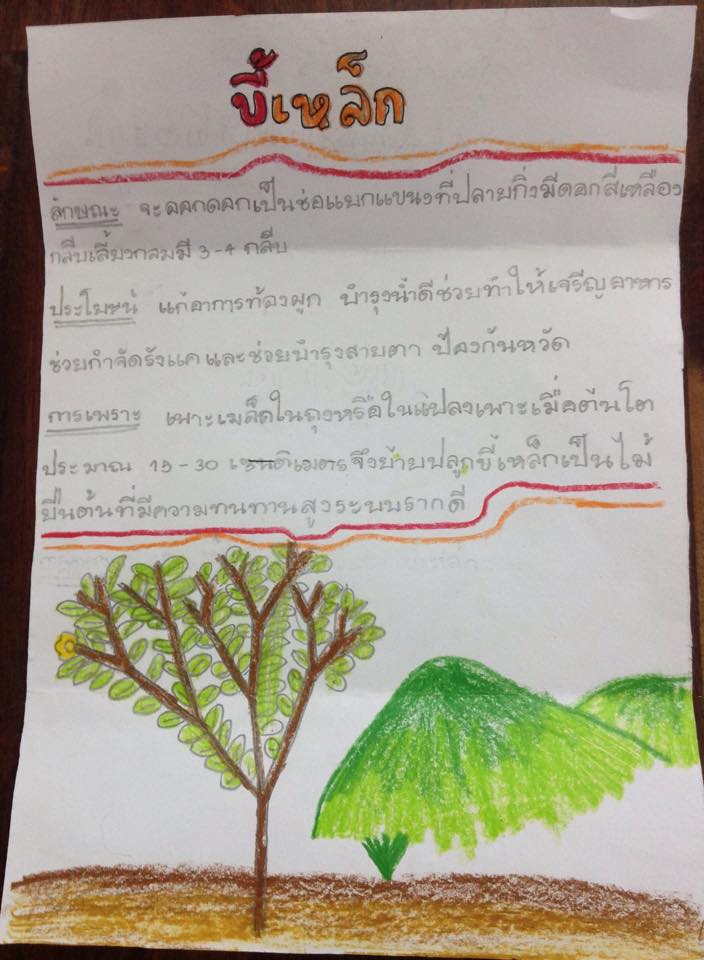 ขี้เหล็ก
ลักษณะ จะออกดอกเป็นช่อแยกแขนงที่ปลายกิ่งมีดอกสีเหลือง
กลีบเลี้ยงกลมมี 3-4 กลีบ
ประโยชน์ แก้อาการท้องผูก บำรุงน้ำดีช่วยทำให้เจริญอาหาร
ช่วยกำจัดรังแค และช่วยบำรุงสายตา ป้องกันหวัด
การเพราะ เพาะเมล็ดในถุงหรือในแปลงเพาะเมื่อต้นโต
ประมาณ 15-30 เซนติเมตรจึงย้ายปลูกขี้เหล็กเป็นไม้
ยืนต้นที่มีความทนทานสูงระบบรากดี